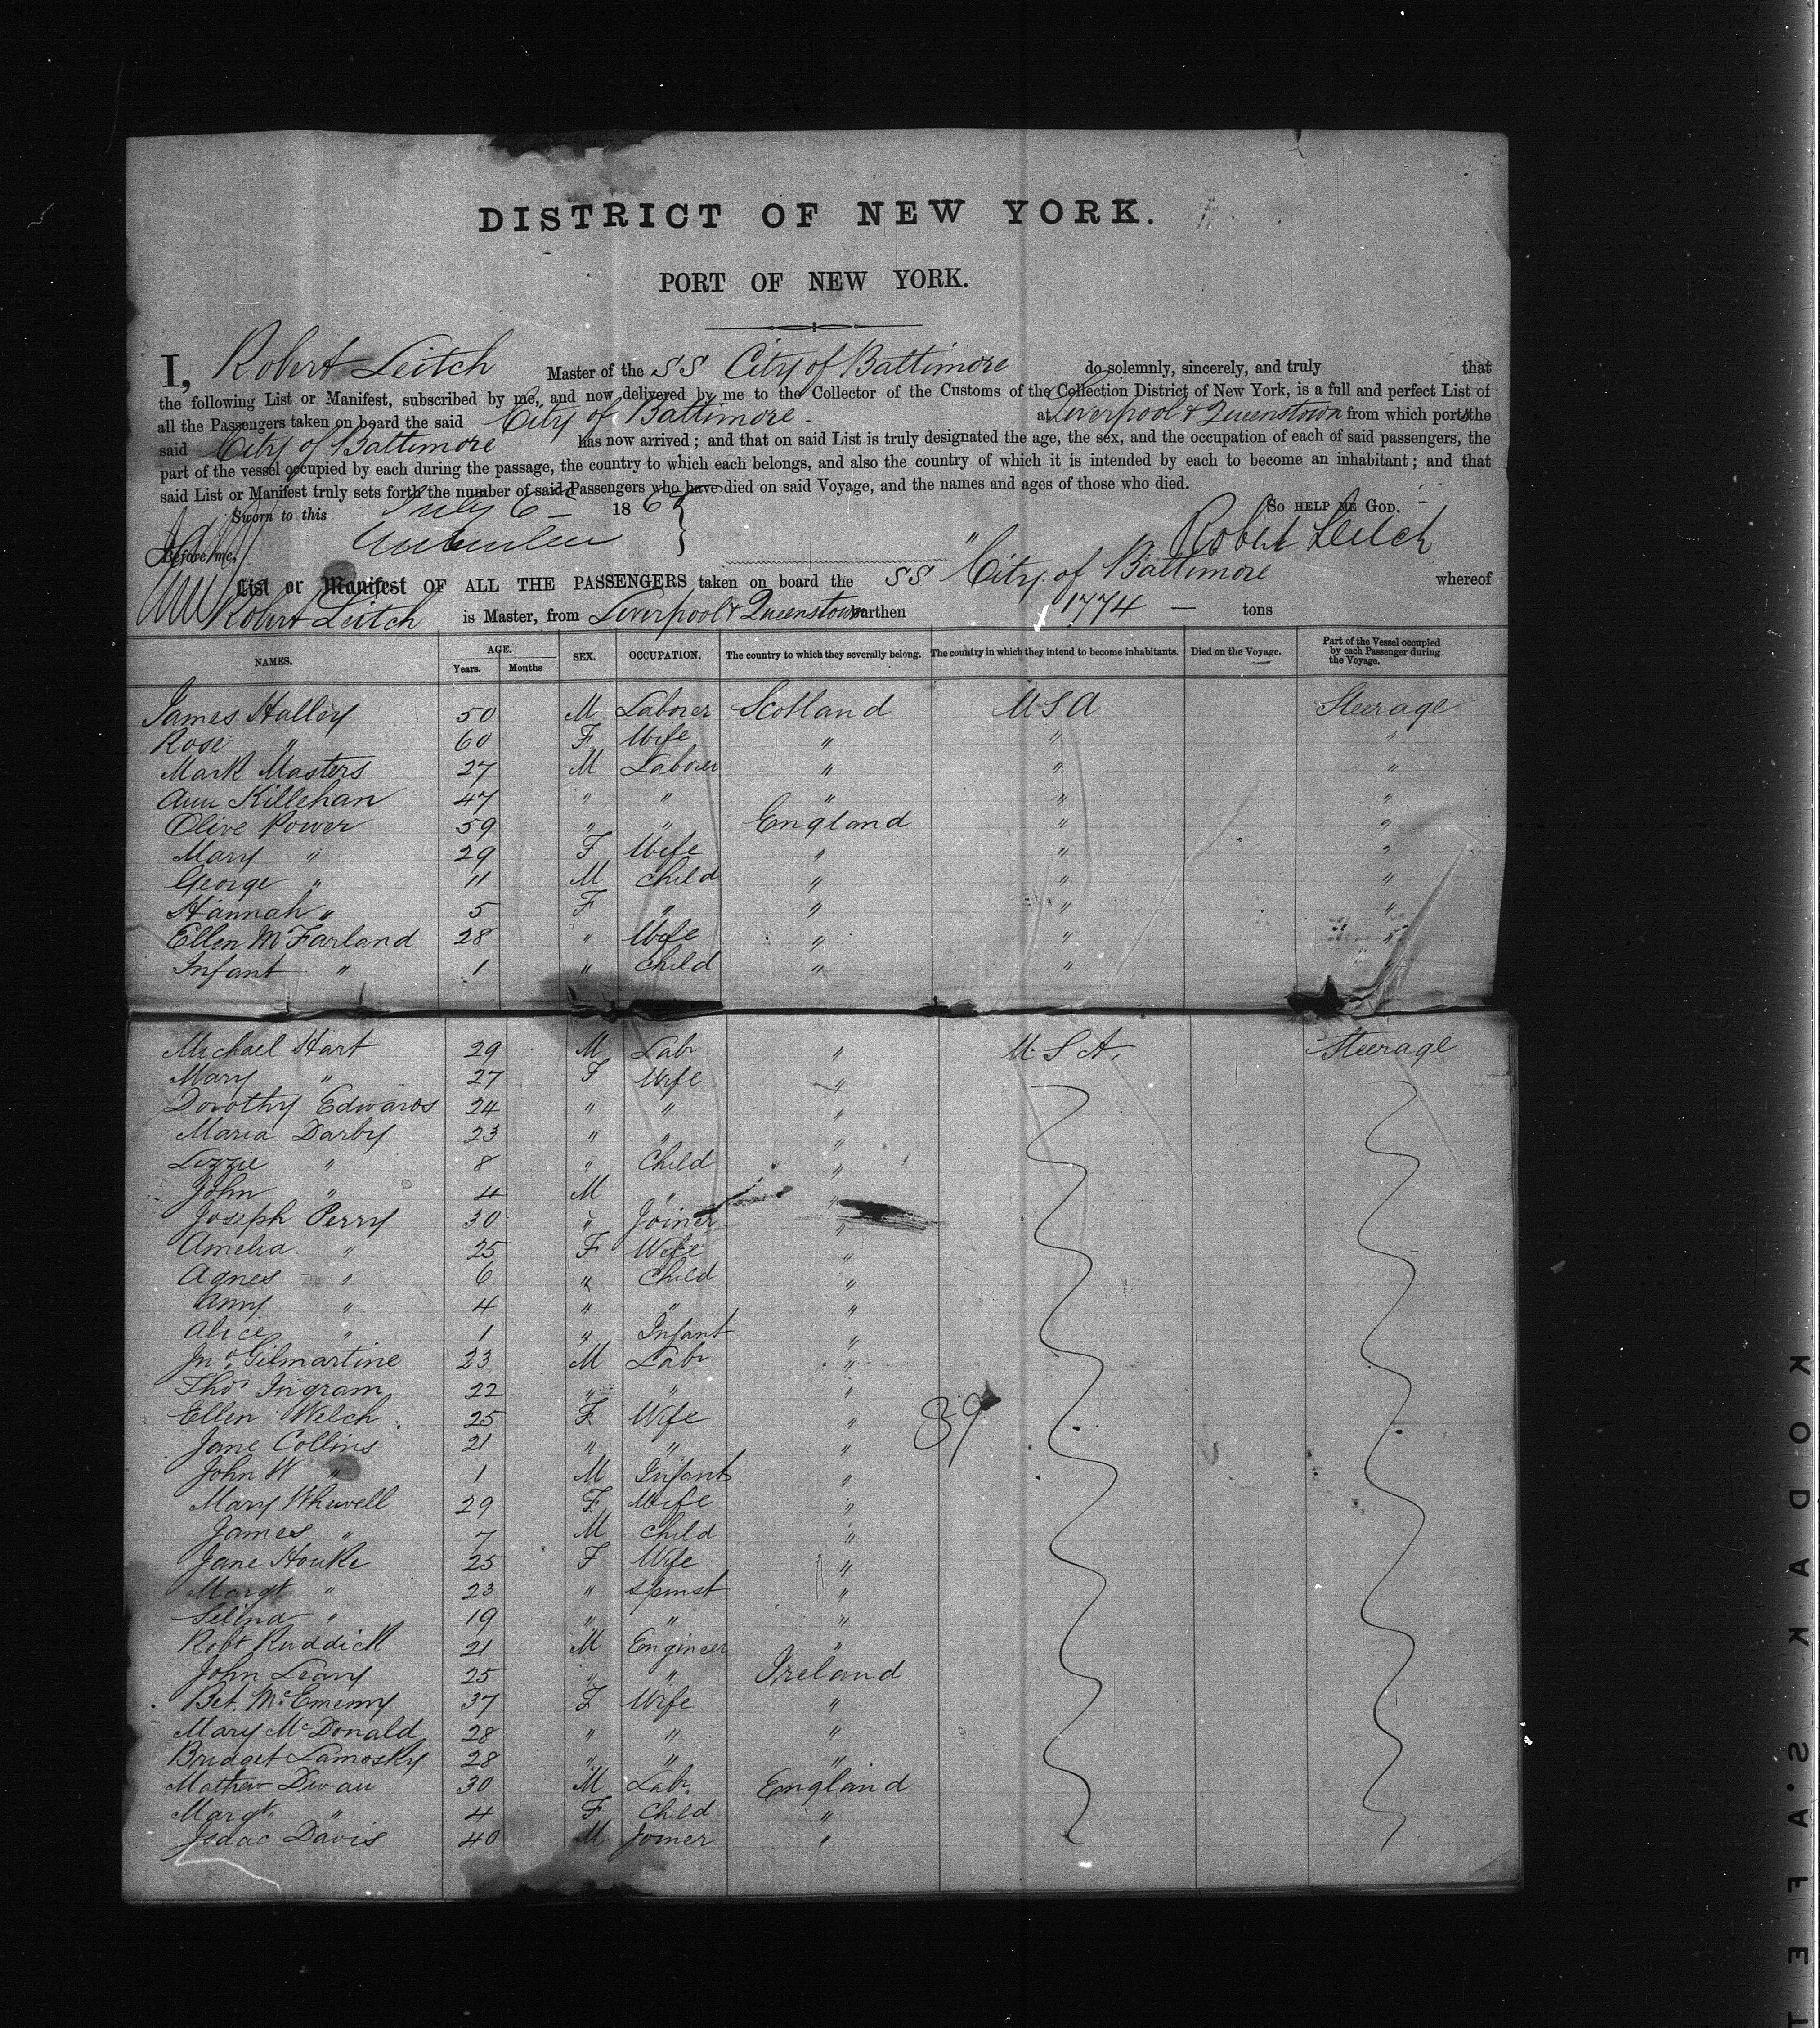 DISTRICT OF NEW YORK.
PORT OF NEW YORK.
I, Robert Leitch Master of the SS City of Baltimore do solemnly, sincerely, and truly that
the following List or Manifest, subscribed by me, and now delivered by me to the Collector of the Customs of the Collection District of New York, is a full and perfect List of
all the Passengers taken on board the said City of Baltimore. at Liverpool & Queenstown from which ports the
said City of Baltimore has now arrived; and that on said List is truly designated the age, the sex, and the occupation of each of said passengers, the
part of the vessel occupied by each during the passage, the country to which each belongs, and also the country of which it is intended by each to become an inhabitant; and that
said List or Manifest truly sets forth the number of said Passengers who have died on said Voyage, and the names and ages of those who died.
Sworn to this July 6 186 So HELP ME GOD.
Before me, Robert Leitch
List or Manifest OF ALL THE PASSENGERS taken on board the SS City of Baltimore whereof
Robert Leitch is Master, from Liverpool & Queenstown burthen 1774 — tons
NAMES. AGE. Years. Months SEX. OCCUPATION. The country to which they severally belong. The country in which they intend to become inhabitants. Died on the Voyage. Part of the Vessel occupied by each Passenger during the Voyage.
James Halley 50 M Laborer Scotland U S A Steerage
Rose " 60 F Wife " " "
Mark Masters 27 M Laborer " " "
Ann Killehan 47 " " " " "
Olive Power 59 " " England " "
Mary " 29 F Wife " " "
George " 11 M Child " " "
Hannah " 5 F " " " "
Ellen McFarland 28 " Wife " " "
Infant " 1 " Child " "
Michael Hart 29 M Labr " U.S.A. Steerage
Mary " 27 F Wife "
Dorothy Edwards 24 " " "
Maria Darby 23 " " "
Lizzie " 8 " Child "
John " 4 M " "
Joseph Perry 30 " Joiner "
Amelia " 25 F Wife "
Agnes " 6 " Child "
Anny " 4 " " "
Alice " 1 " Infant "
Jno. Gilmartine 23 M Labr "
Thos Ingram 22 " " "
Ellen Welch 25 F Wife " 89
Jane Collins 21 " " "
John W " 1 M Infant "
Mary Whewell 29 F Wife "
James " 7 M Child "
Jane Houke 25 F Wife "
Margt " 23 " Spinst "
Selina " 19 " " "
Robt Ruddick 21 M Engineer "
John Leary 25 " " Ireland
Bet. 37 F Wife "
Mary McDonald 28 " " "
Bridget Lamosky 28 " " "
Mathew 30 M Labr England
Margt. " 4 F Child "
Isaac Davis 40 M Joiner "
KODAK S.AFET